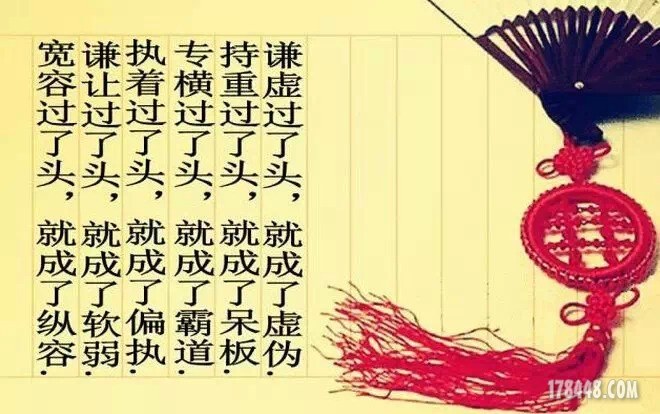 谦虚过了头，就成了虚伪.
持重过了头，就成了呆板.
专横过了头，就成了霸道.
执着过了头，就成了偏执.
谦让过了头，就成了软弱.
宽容过了头，就成了纵容.
178448.COM